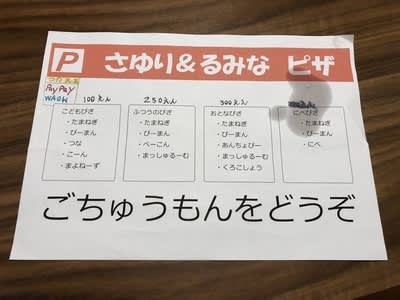 P さゆり&るみな ピザ
PayPay
WAON
100えん
こどもぴざ
・たまねぎ
・ぴーまん
・つな
・こーん
・まよねーず
250えん
ふつうのぴざ
・たまねぎ
・ぴーまん
・べーこん
・まっしゅるーむ
300えん
おとなぴざ
・たまねぎ
・ぴーまん
・あんちょびー
・まっしゅるーむ
・くろこしょう
にべぴざ
・たまねぎ
・ぴーまん
・にべ
ごちゅうもんをどうぞ